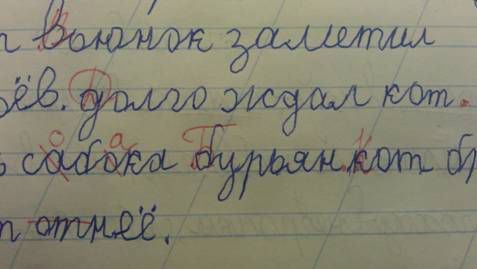 Вьюнок заметил
ёв. долго ждал кот.
сабока бурьян.кот б
отнеё.